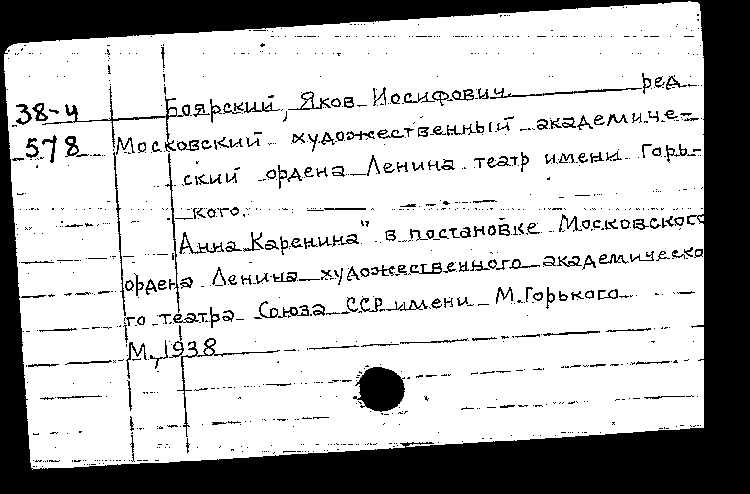 38-4 Боярский, Яков Иосифович ред
578 Московский художественный академиче-
ский ордена Ленина театр имени Горь-
кого.
„Анна Каренина" в постановке Московского
ордена Ленина художественного академическо
го театра Союза ССР имени М.Горького
М., 1938